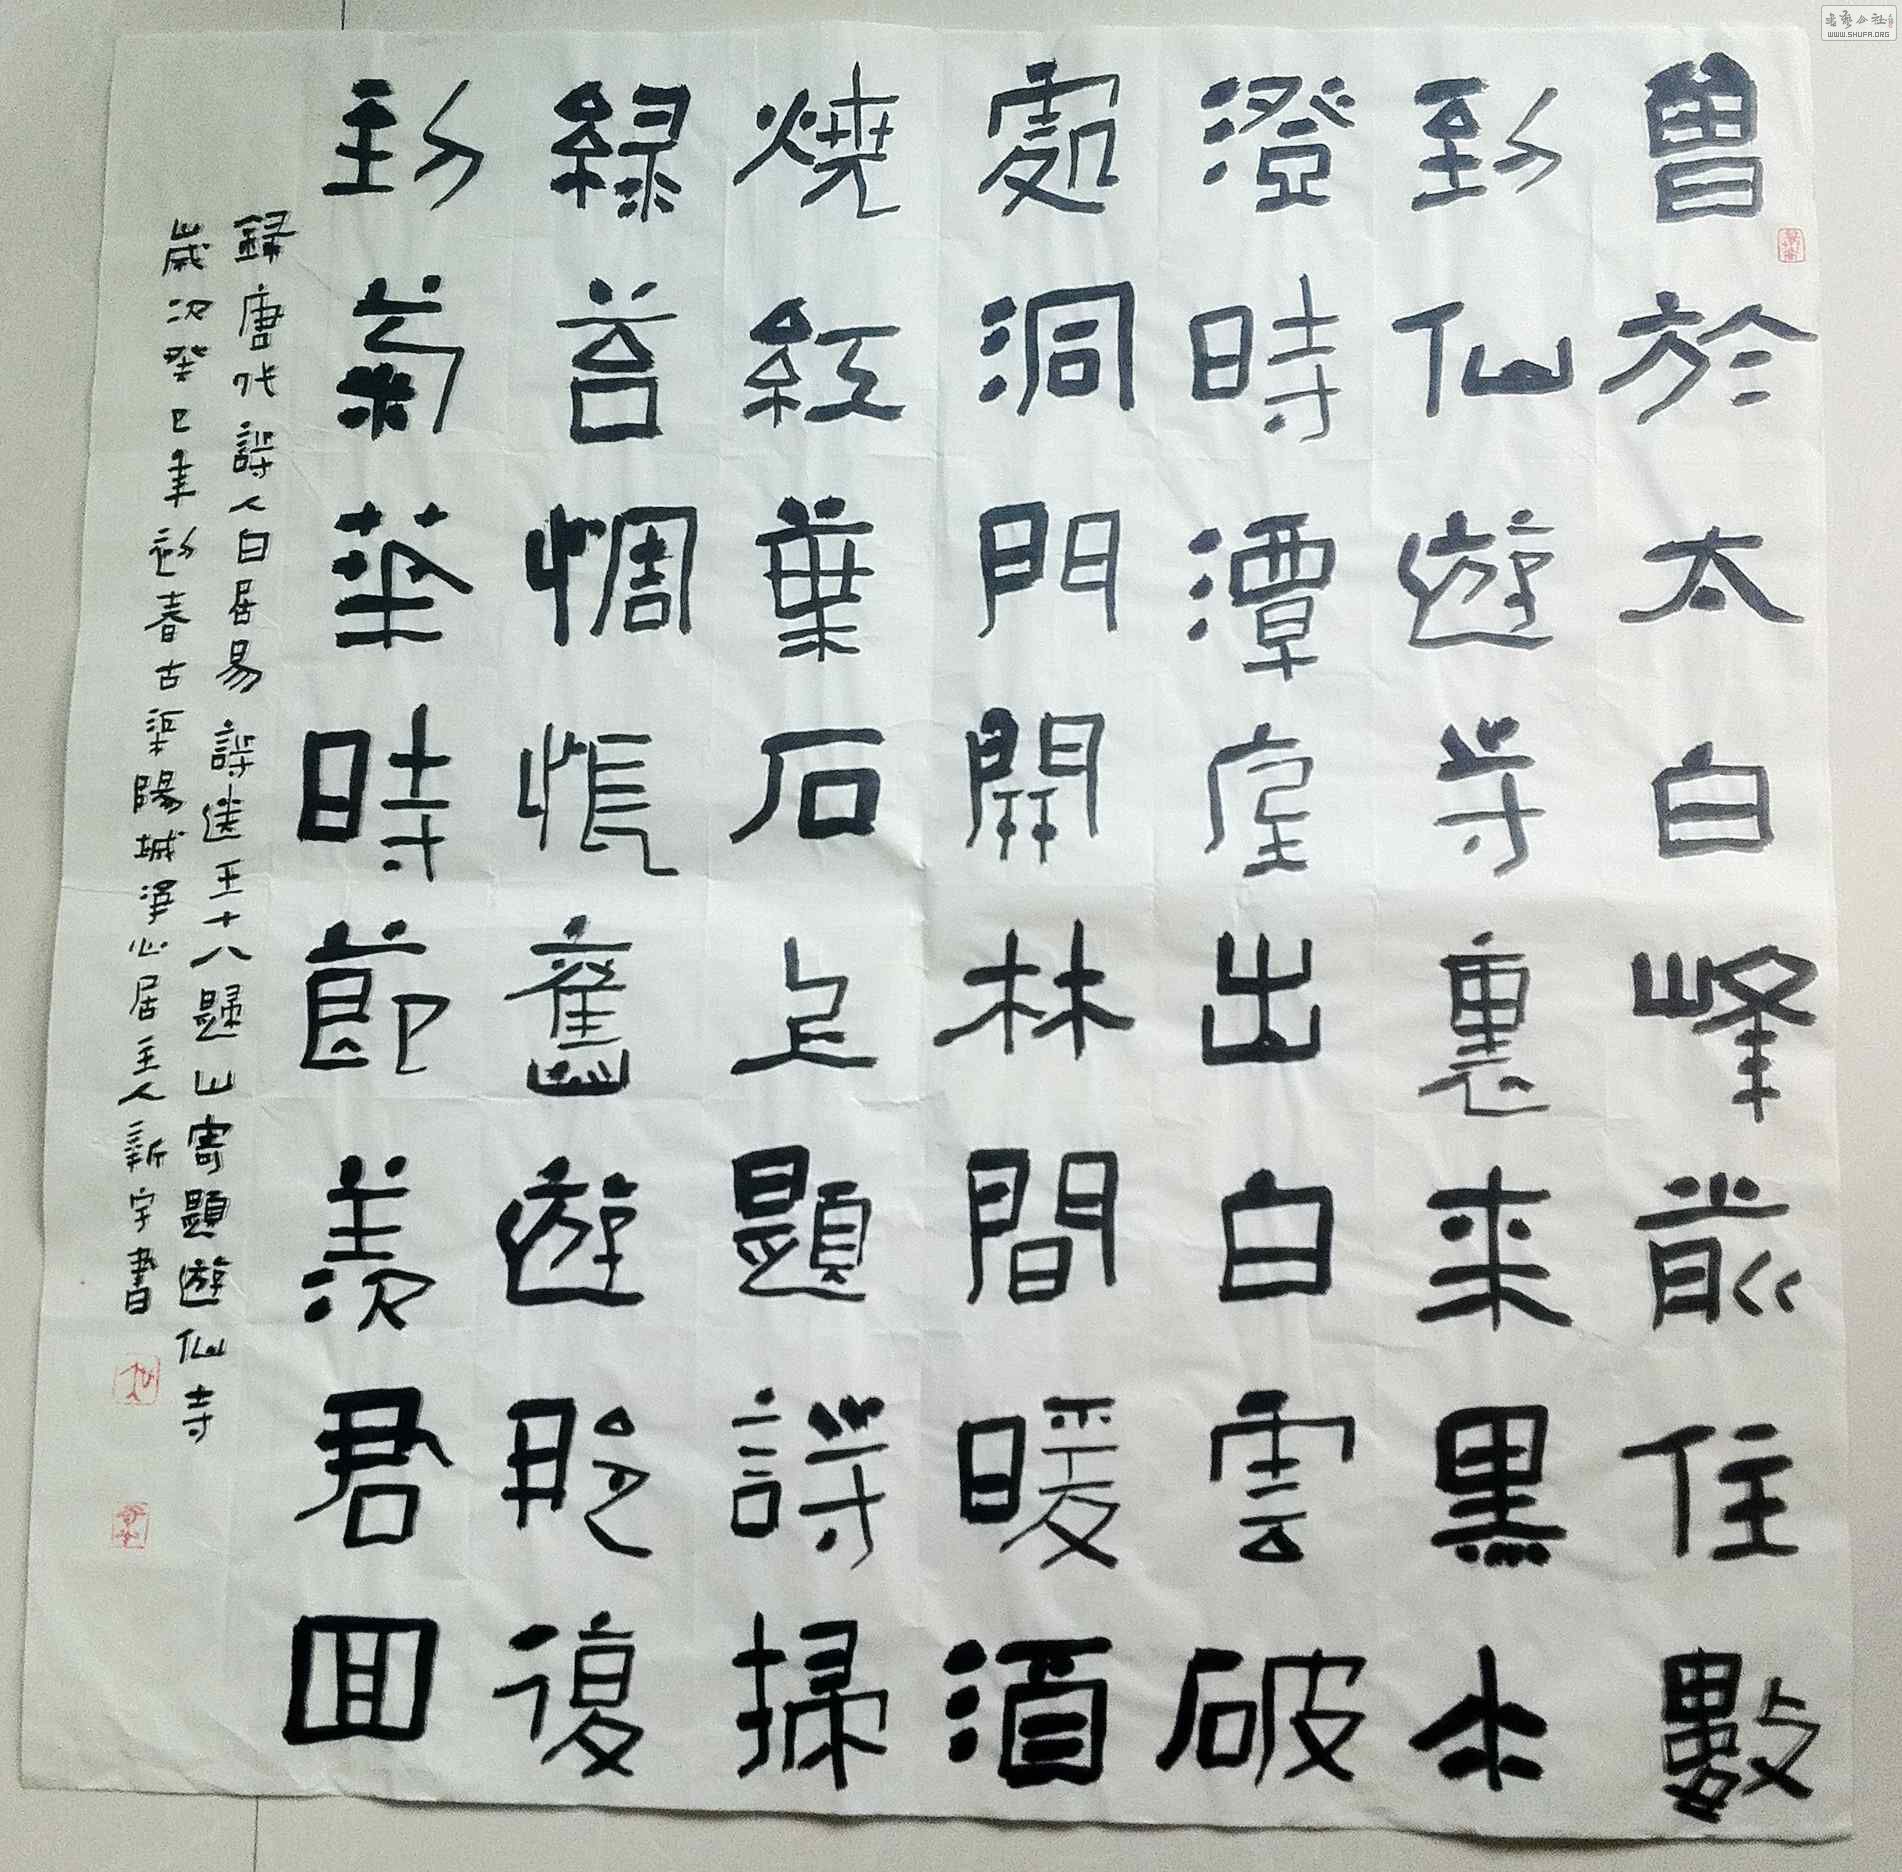 曾於太白峰前住數
到仙遊寺裏來黑水
澄時潭底出白雲破
處洞門開林間暖酒
燒紅葉石上題詩掃
綠苔惆悵舊遊那復
到菊花時節羨君回
錄唐代詩人白居易詩送王十八歸山寄題遊仙寺
歲次癸巳年初春古陽城淨心居主人新宇書
書藝公社
WWW.SHUFA.ORG